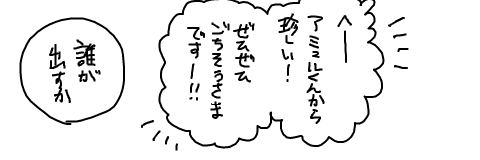 へー
アミュルくんから
珍しい！
ぜひぜひ
ごちそうさま
ですー!!
誰が
出すか